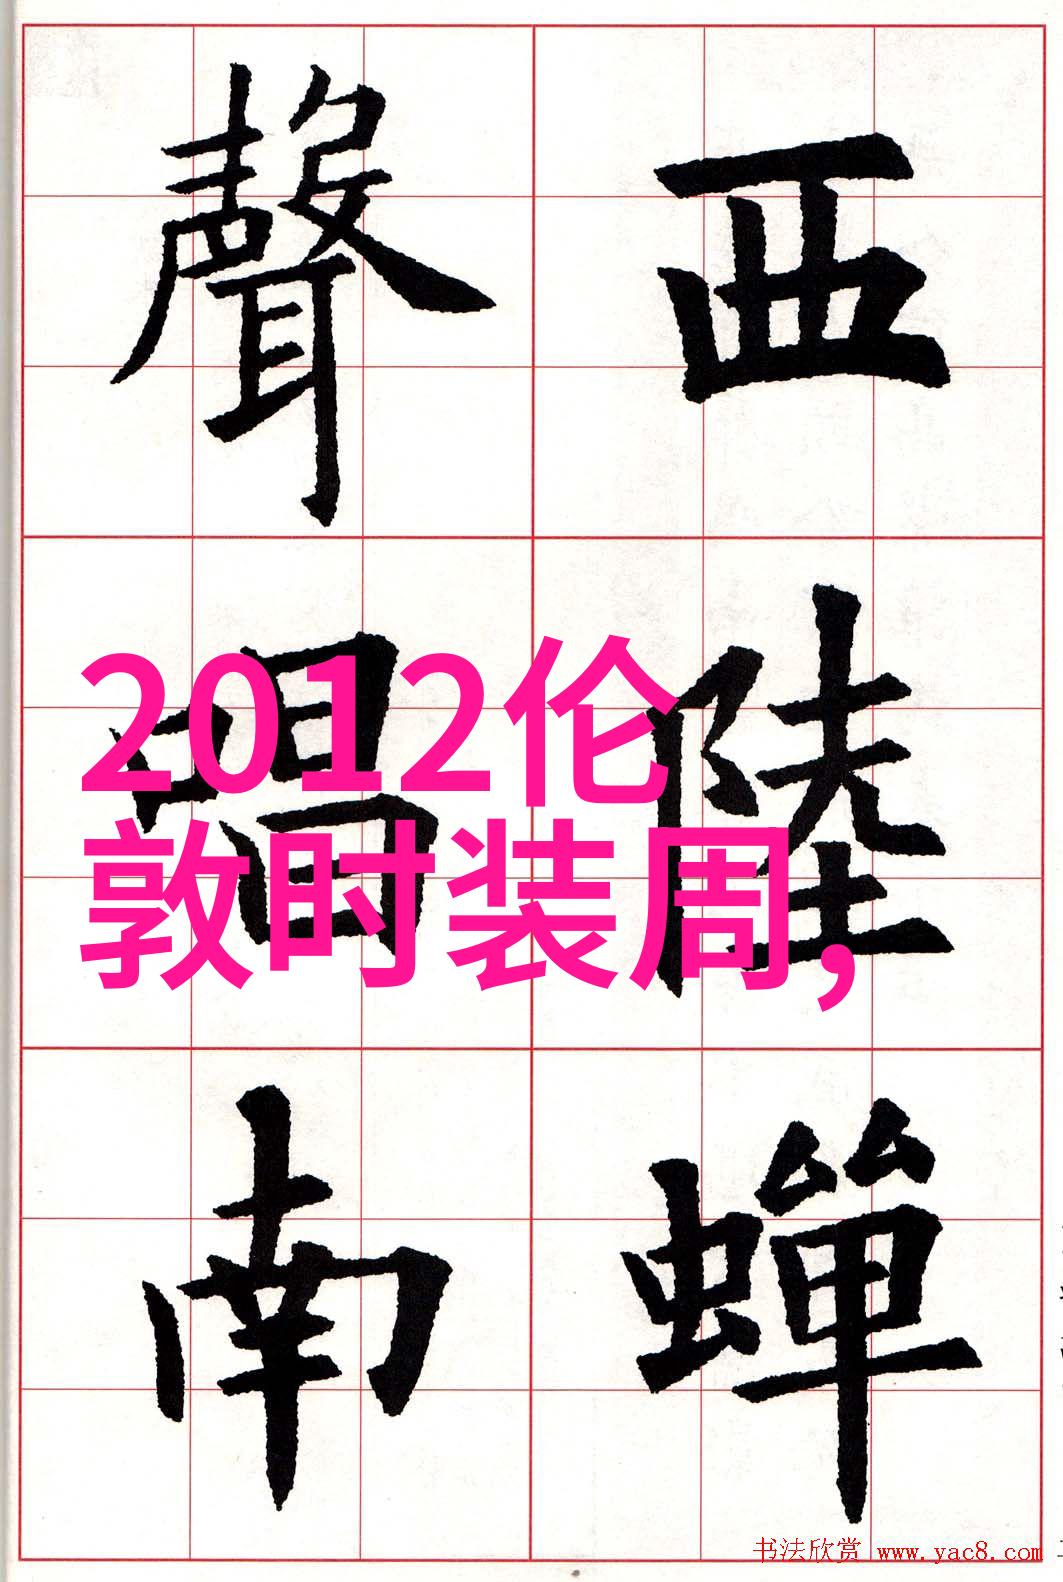 西陸蟬
聲唱南
2012伦
敦时装周,
书法欣赏 www.yac8.com